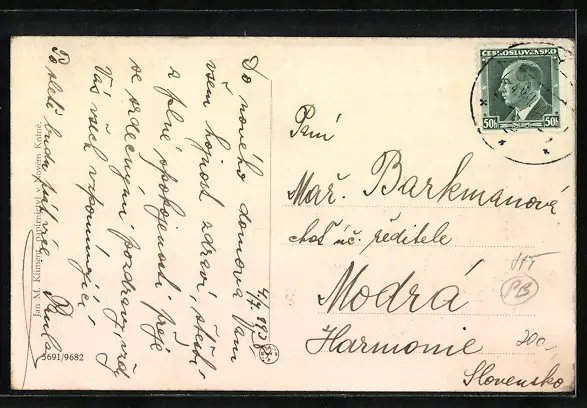 Do nového domova Vám
všem hojnost zdraví, štěstí
a plné spokojenosti přeje
se srdečnými pozdravy, vždy
Vás všech vzpomínající
Pavla
Po sletě budu psát více.
4/7 1938
Jan M. Klimeš, papírnictví v Novém Kníně.
5691/9682
ČESKOSLOVENSKO
50h 50h
Paní
Mař. Barkmanová
choť úč. ředitele
Modrá
Harmonie
Slovensko
PB
200,-